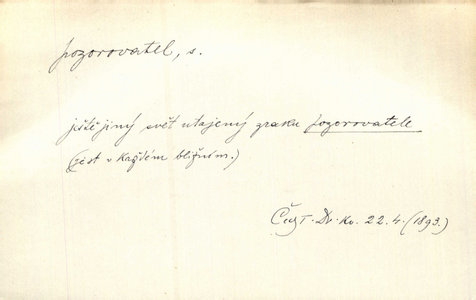 pozorovatel, s.
jiště jiný svět utajený zraku pozorovatele
(jest v každém bližním.)
Čech. Dr. Kv. 22. 4. (1893.)